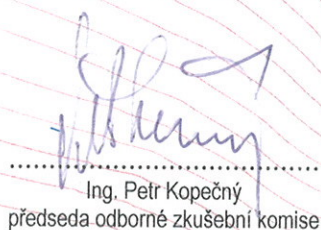 Ing. Petr Kopečný
předseda odborné zkušební komise